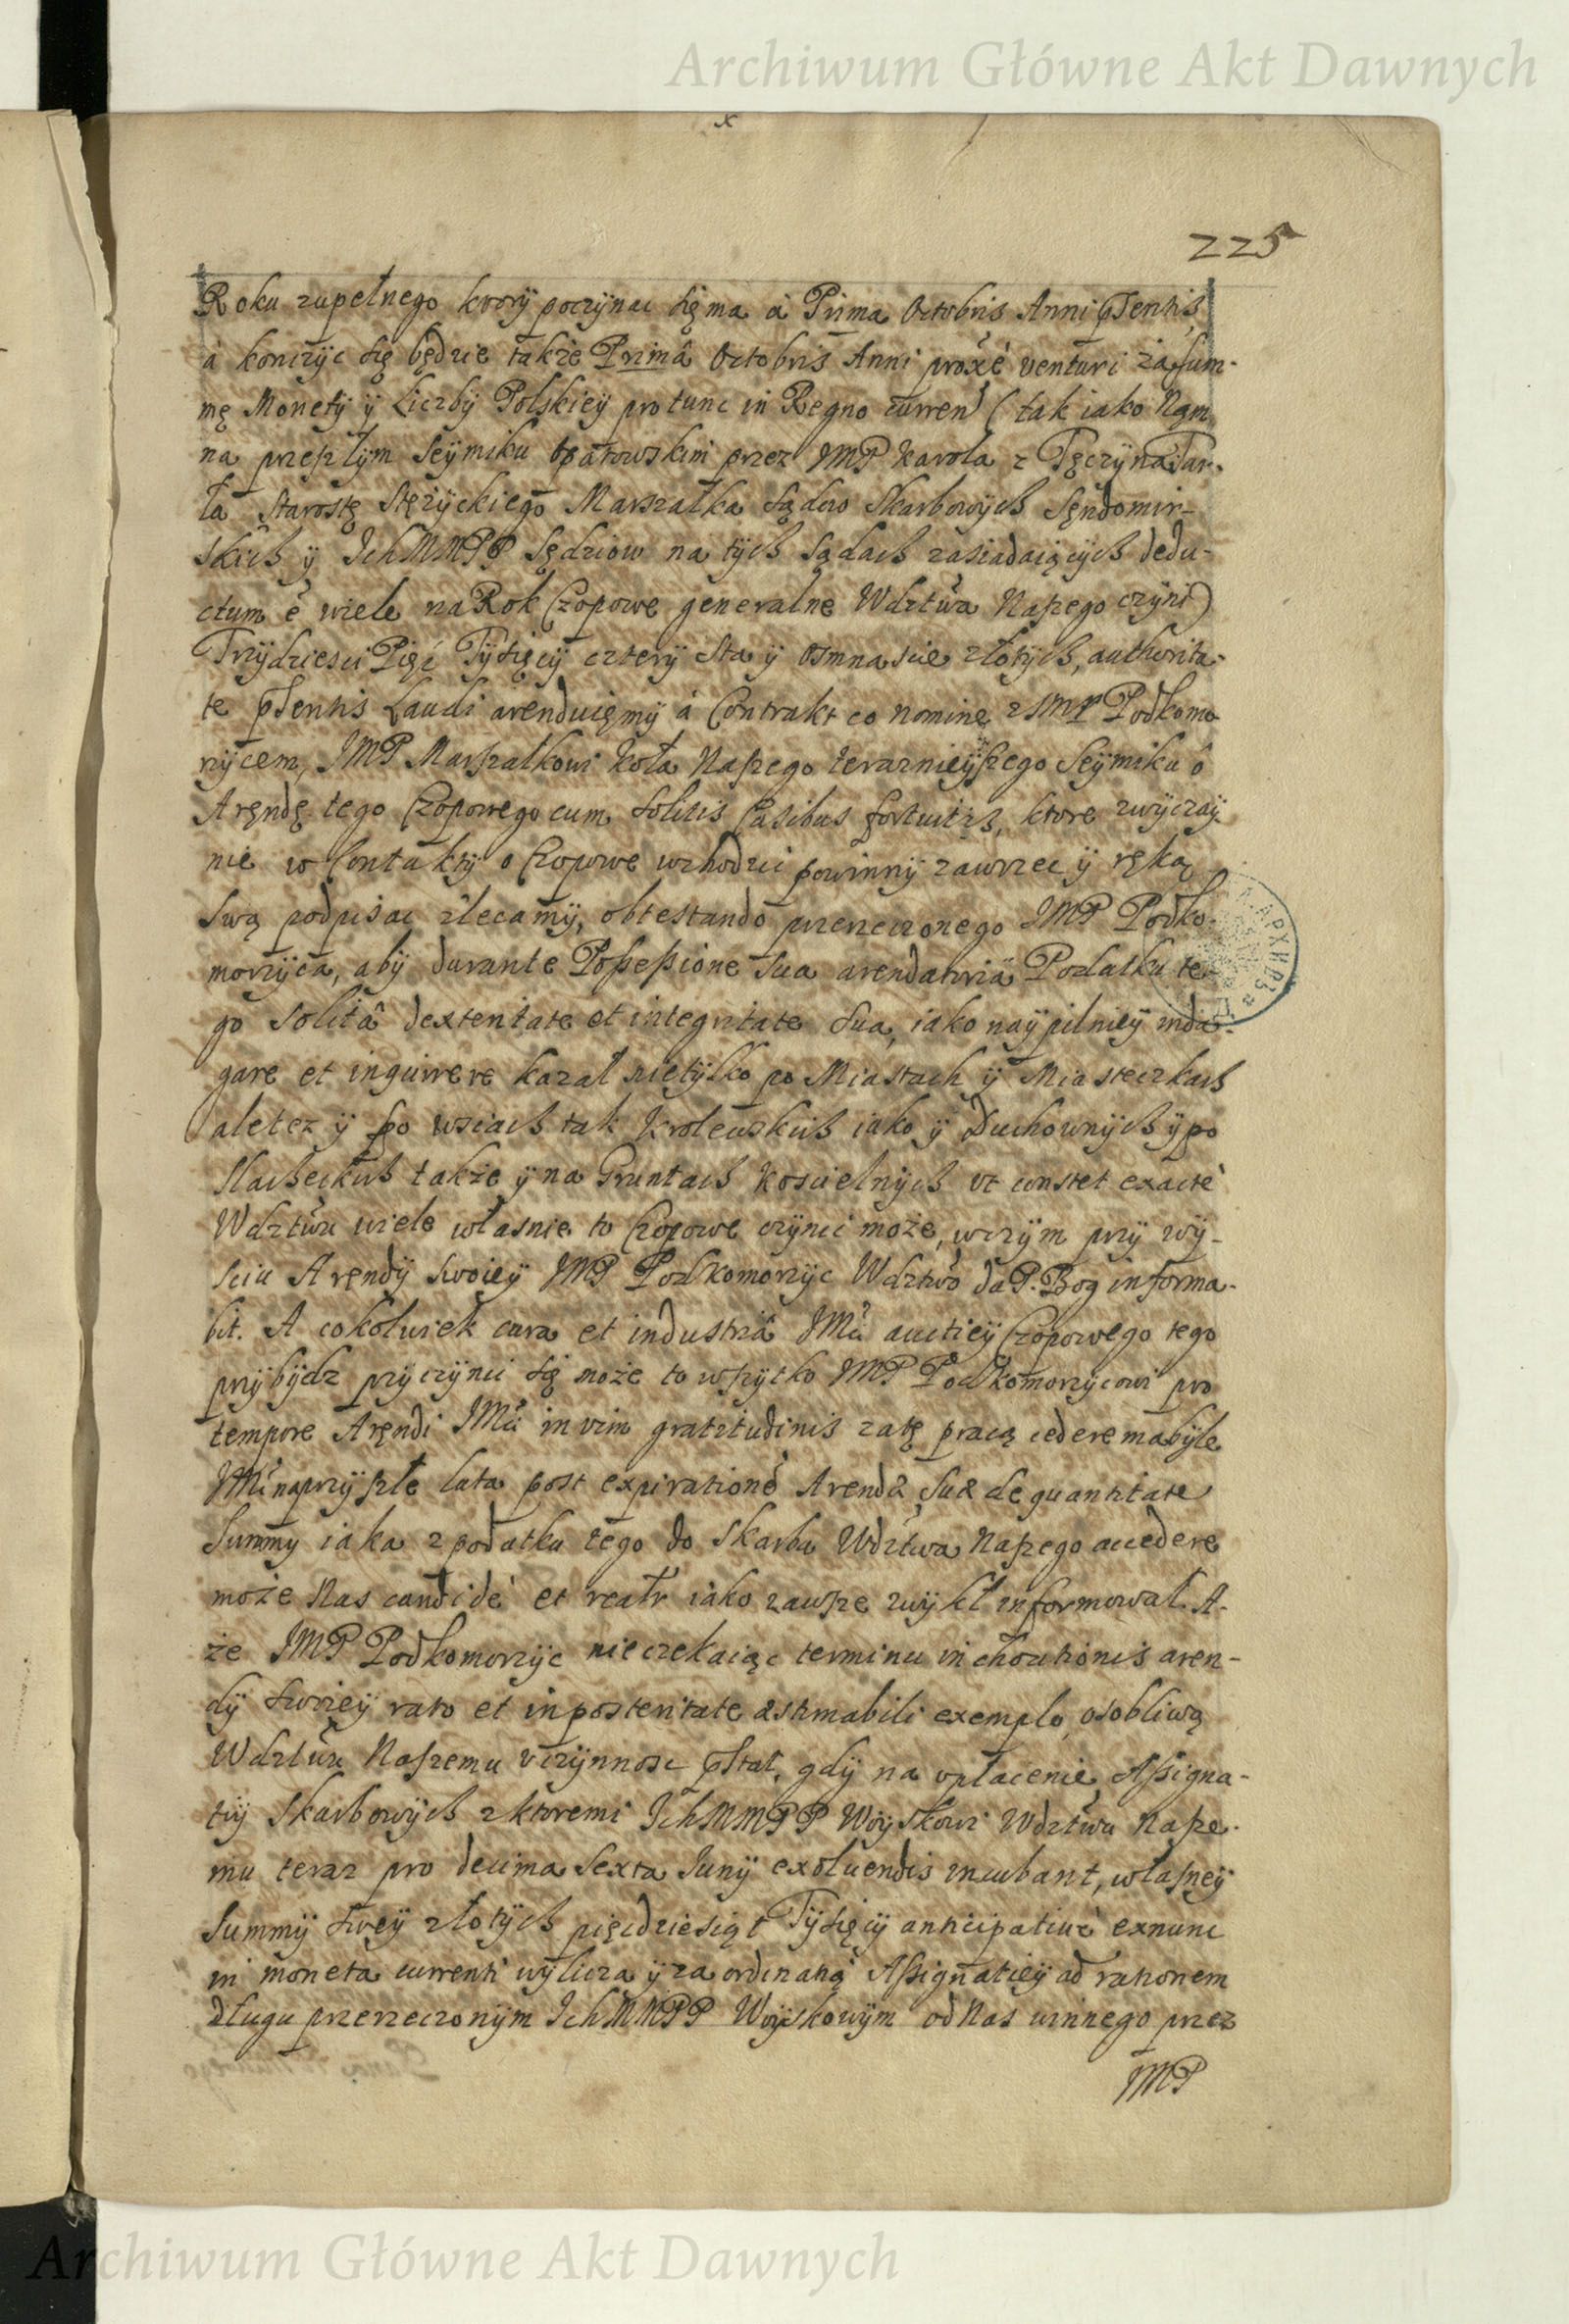 Archiwum Główne Akt Dawnych
225
Roku zupełnego ktory poczynac się ma à Prima Octobris Anni pſentis
à konczyc się będzie także Primâ Octobris Anni proxè venturi za Sum-
mę Monety ÿ Liczby Polskieÿ pro tunc in Regno curren (tak iako Nam
na przeszłym Seymiku Opatowskim przez JMP Karola z Tęczyna Tar-
ła Starostę Stężyckiego Marszałka Sądow Skarbowych Sęndomir-
skich ÿ IchMMPP Sędziow na tych Sądach zasiadaiących dedu-
ctum è wiele na Rok Czopowe generalne Wdztwa Naszego czyni)
Trzydziesci Pięć Tysięcy cztery Sta ÿ osmnascie złotych, authorita-
te pſentis Laudi arenduięmy à Contrakt eo nomine z JMP Podkomo-
rzycem, JMP Marszałkowi Koła Naszego teraznieyszego Seymiku ô
Aręndę tego Czopowego cum solitis Casibus fortuitis, ktore zwyczaÿ
nie w Contakty o Czopowe wchodzic powinny zawrzec ÿ ręką
Swą podpisac zlecamy, obtestando przerzeczonego JMP Podko-
morzyca, aby durante Possessione sua arendatoriâ Podatku te-
go solitâ dexteritate et integritate sua, iako naypilnieÿ inda-
gare et inquirere kazał nietylko po Miastach ÿ Miasteczkach
ale tez ÿ po wsiach tak Krolewskich iako ÿ Duchownych ÿ po
Slacheckich także ÿ na Gruntach Koscielnych vt constet exactè
Wdztwu wiele własnie to Czopowe czynic może, wczym przy wÿ-
sciu Aręndy swoieÿ JMP Podkomorzyc Wdztwo da P. Bog informa-
bit. A cokolwiek cura et industriâ JMci auctieÿ Czopowego tego
przybydz przyczynic się może to wszytko JMP Podkomorzycowi pro
tempore Aręndi JMci in vim gratitudinis zatę pracą cedere ma byle
JMci na przyszłe lata post expirationé Arendæ suæ de quantitate
Summy iaka z podatku tego do Skarbu Wdztwa Naszego accedere
może Nas candidè et realr iako zawsze zwykł informował. A-
że JMP Podkomorzyc nie czekaiąc terminu inchoationis aren-
dy swoieÿ raro et in posteritate æstimabili exemplo, osobliwą
Wdztwu Naszemu vczynnosc pſtał, gdy na vpłacenie Assigna-
tiy Skarbowych z ktoremi IchMMPP Woyskowi Wdztwu Nasze-
mu teraz pro decima Sexta Junÿ exoluendis incubant, własneÿ
Summy sweÿ złotych pięcdziesiąt Tysięcy anticipativè exnunc
in moneta currenti wylicza ÿ za ordinatią Assignatieÿ ad rationem
długu przerzeczonym IchMMPP Woyskowym od Nas winnego przez
JMP
Archiwum Główne Akt Dawnych